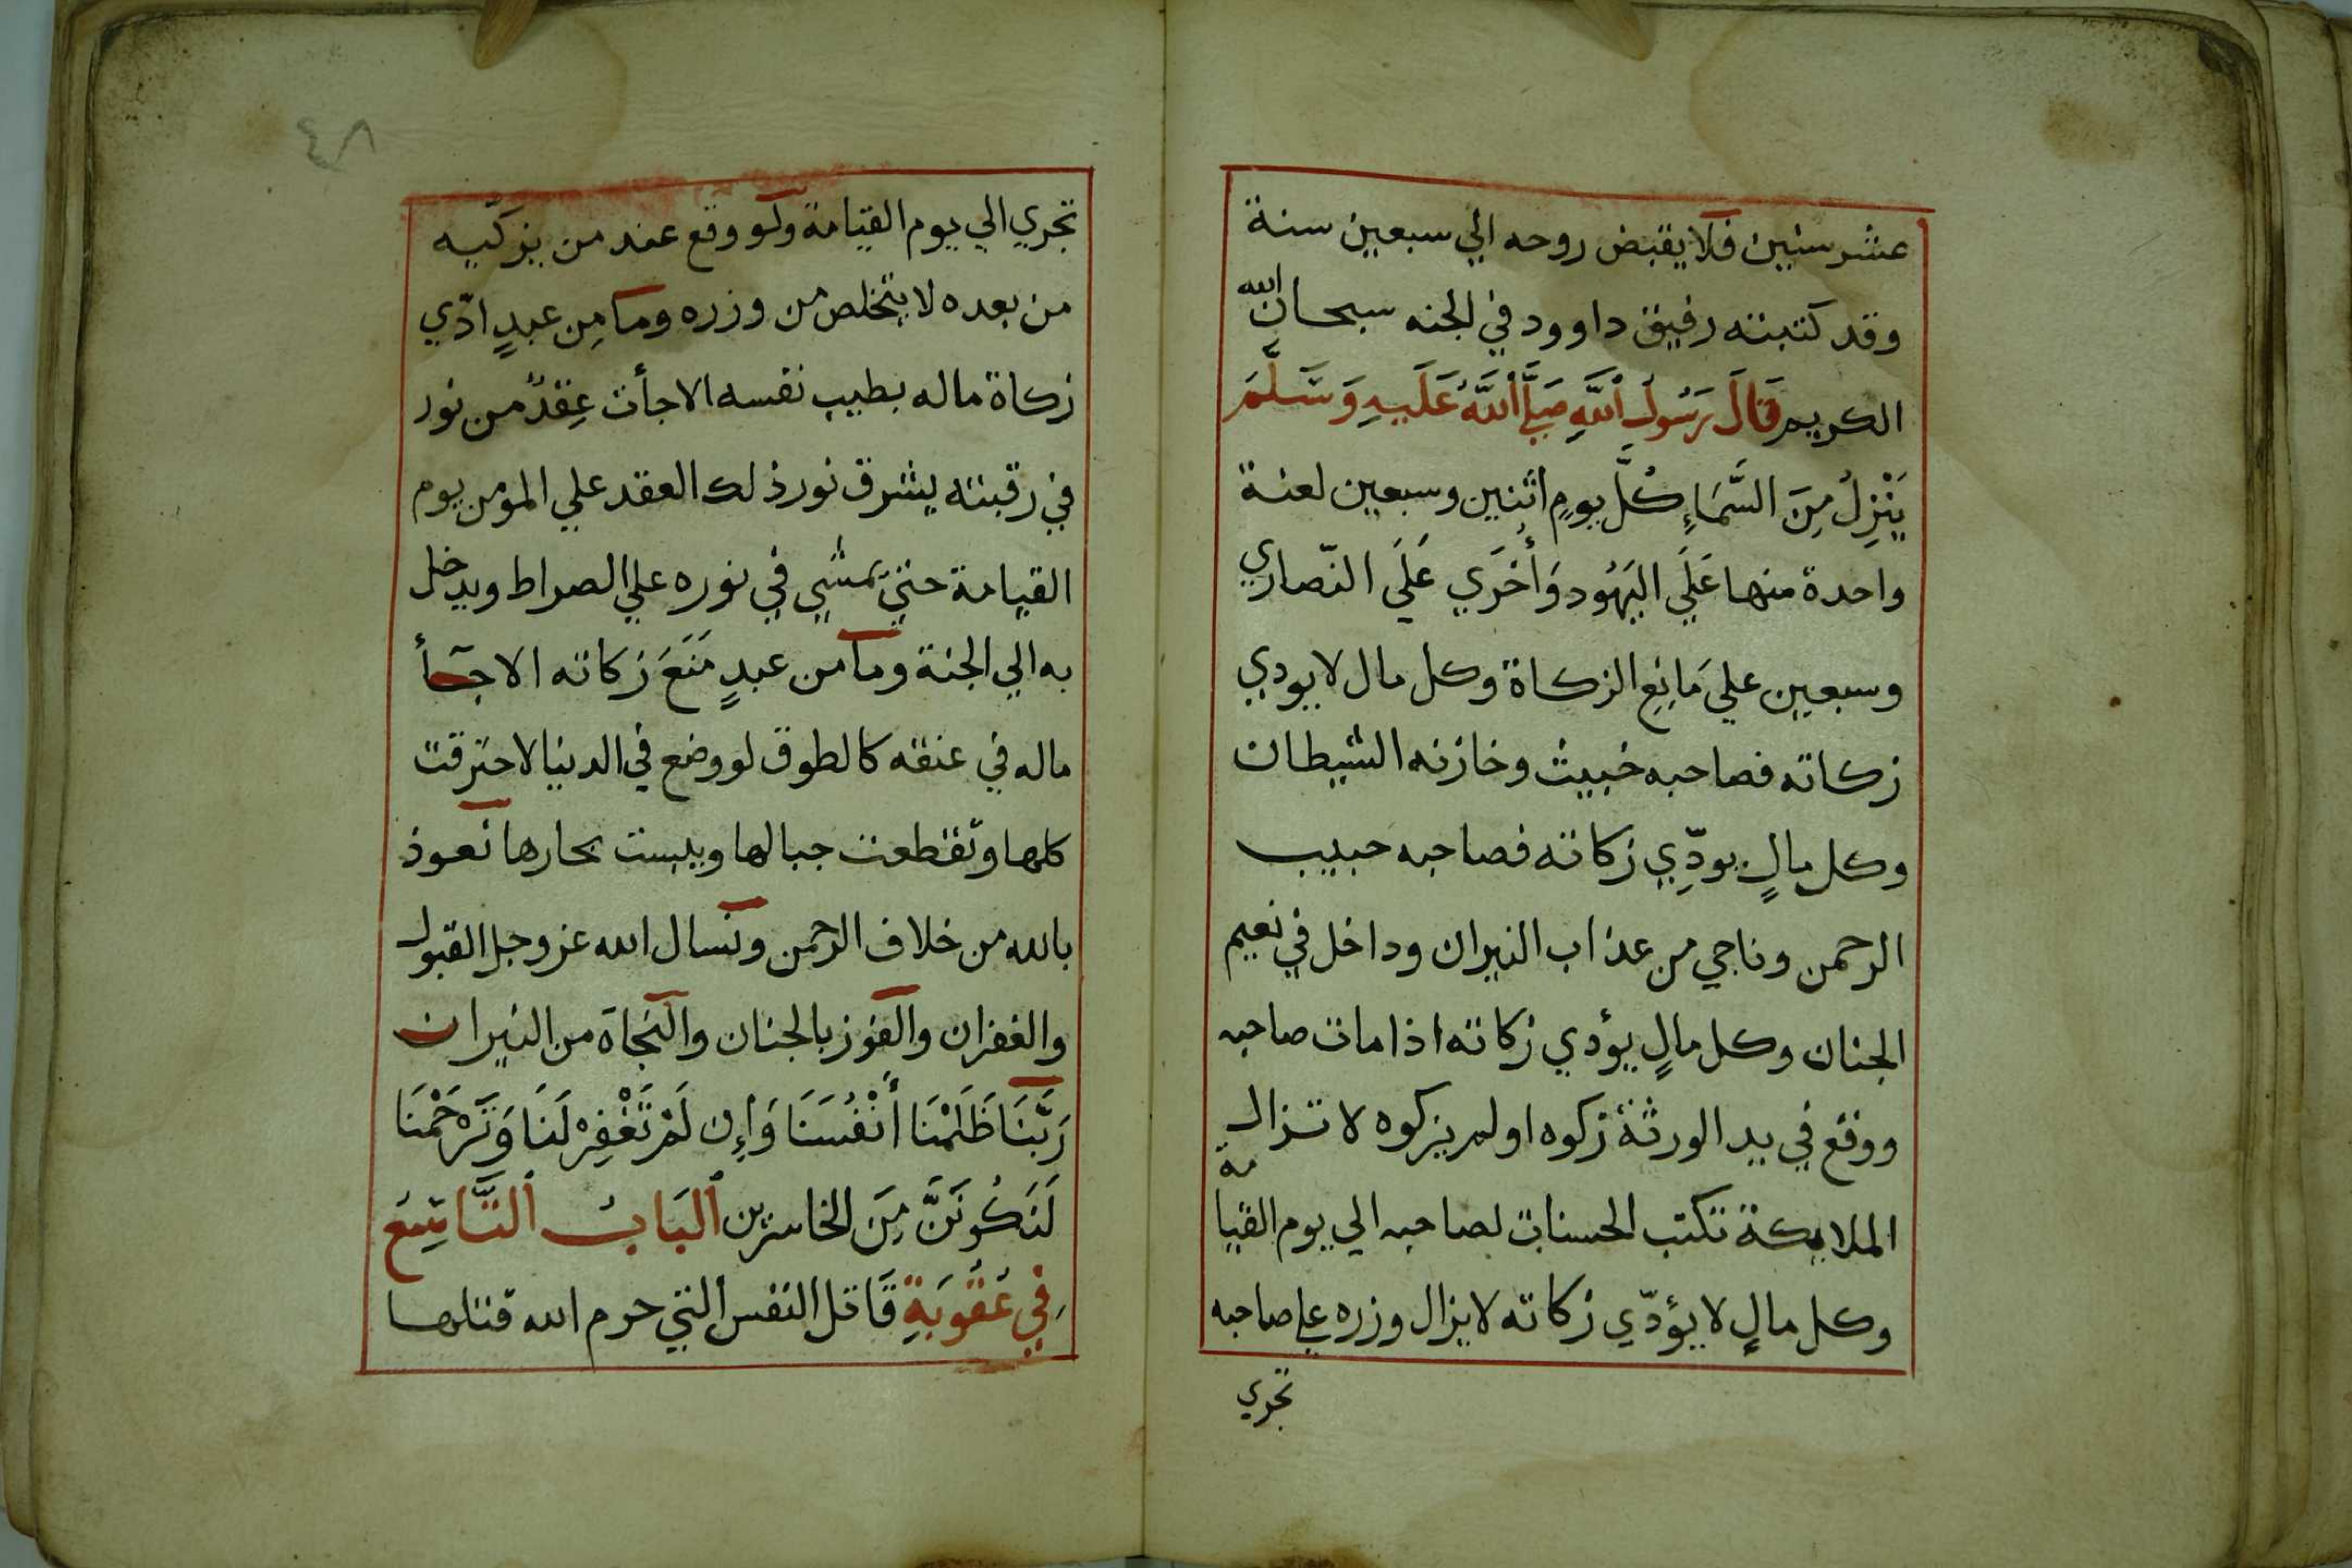 عشر سنين فلا يقبض روحه الي سبعين سنة
وقد كتبته رفيق داوود في الجنه سبحان الله
الكريم قَالَ رَسُولُ اللَّهِ صَلَّي اللَّهُ عَلَيهِ وَسَلَّمَ
يَنْزِلُ مِنَ السَّمَاءِ كُلَّ يومٍ اثنين وسبعين لعنة
واحدة منها عَلَي اليَهُود وَأُخرَي عَلَي النّصاري
وسبعين علي مَانِعِ الزكاة وكل مال لا يودي
زكاته فصاحبه خبيث وخازنه الشيطان
وكل مالٍ يودِّي زكاته فصاحبه حبيب
الرحمن وناجي من عذاب النيران وداخل في نعيم
الجنان وكل مالٍ يؤدي زكاته اذا مات صاحبه
ووقع في يد الورثة زكوه او لم يزكوه لا تزال
الملايكة تكتب الحسنات لصاحبه الي يوم القيامة
وكل مالٍ لا يؤدّي زكاته لا يزال وزره علي صاحبه
تجري
٤٨
تجري الي يوم القيامة ولو وقع عند من يزكّيه
من بعده لا يتخلص من وزره وما مِن عبدٍ ادّي
زكاة ماله بطيب نفسه الا جأت عِقدٌ من نور
في رقبته يشرق نور ذلك العقد علي المومن يوم
القيامة حتي يمشي في نوره علي الصراط ويدخل
به الي الجنة وما من عبدٍ مَنَعَ زكاته الا جأ
ماله في عنقه كالطوق لو وضع في الدنيا لاحترقت
كلها وتقطعت جبالها ويبست بحارها نعوذ
بالله من خلاف الرحمن ونسال الله عز وجل القبول
والغفران والفوز بالجنان والنجاة من النيران
رَبَّنَا ظَلَمْنَا أَنْفُسَنَا وَإِن لَمْ تَغْفِرْ لَنَا وَتَرْحَمْنَا
لَنَكُونَنَّ مِنَ الخاسرين البَابُ التَّاسِعُ
فِي عُقُوبَةِ قَاتل النفس التي حرم الله قتلها